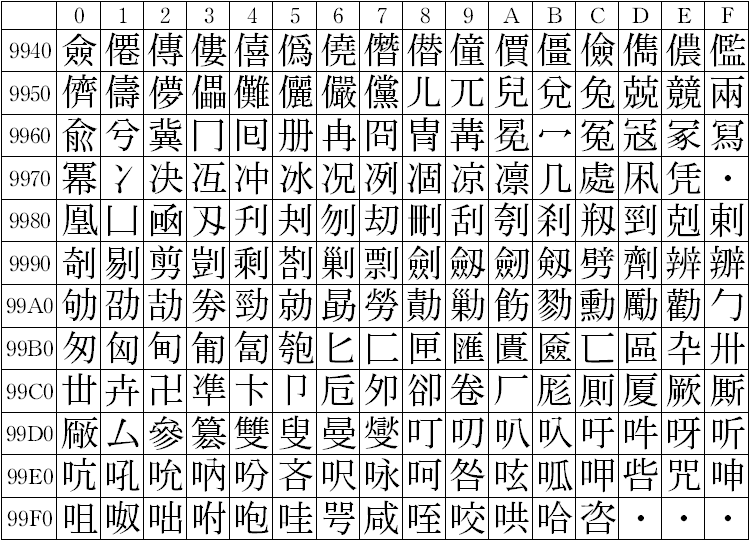 0 1 2 3 4 5 6 7 8 9 A B C D E F
9940 僉 僊 傳 僂 僖 僞 僥 僭 僣 僮 價 僵 儉 儁 儂 儖
9950 儕 儔 儚 儡 儺 儷 儼 儻 儿 兀 兒 兌 兔 兢 竸 兩
9960 兪 兮 冀 冂 囘 册 冉 冏 冑 冓 冕 冖 冤 冦 冢 冩
9970 冪 冫 决 冱 冲 冰 况 冽 凅 凉 凛 几 處 凩 凭 ・
9980 凰 凵 凾 刄 刋 刔 刎 刧 刪 刮 刳 刹 剏 剄 剋 剌
9990 剞 剔 剪 剴 剩 剳 剿 剽 劍 劔 劒 剱 劈 劑 辨 辧
99A0 劬 劭 劼 劵 勁 勍 勗 勞 勣 勦 飭 勠 勳 勵 勸 勹
99B0 匆 匈 甸 匍 匐 匏 匕 匚 匣 匯 匱 匳 匸 區 卆 卅
99C0 丗 卉 卍 凖 卞 卩 卮 夘 卻 卷 厂 厖 厠 厦 厥 厮
99D0 厰 厶 參 簒 雙 叟 曼 燮 叮 叨 叭 叺 吁 吽 呀 听
99E0 吭 吼 吮 吶 吩 吝 呎 咏 呵 咎 呟 呱 呷 呰 咒 呻
99F0 咀 呶 咄 咐 咆 哇 咢 咸 咥 咬 哄 哈 咨 ・ ・ ・